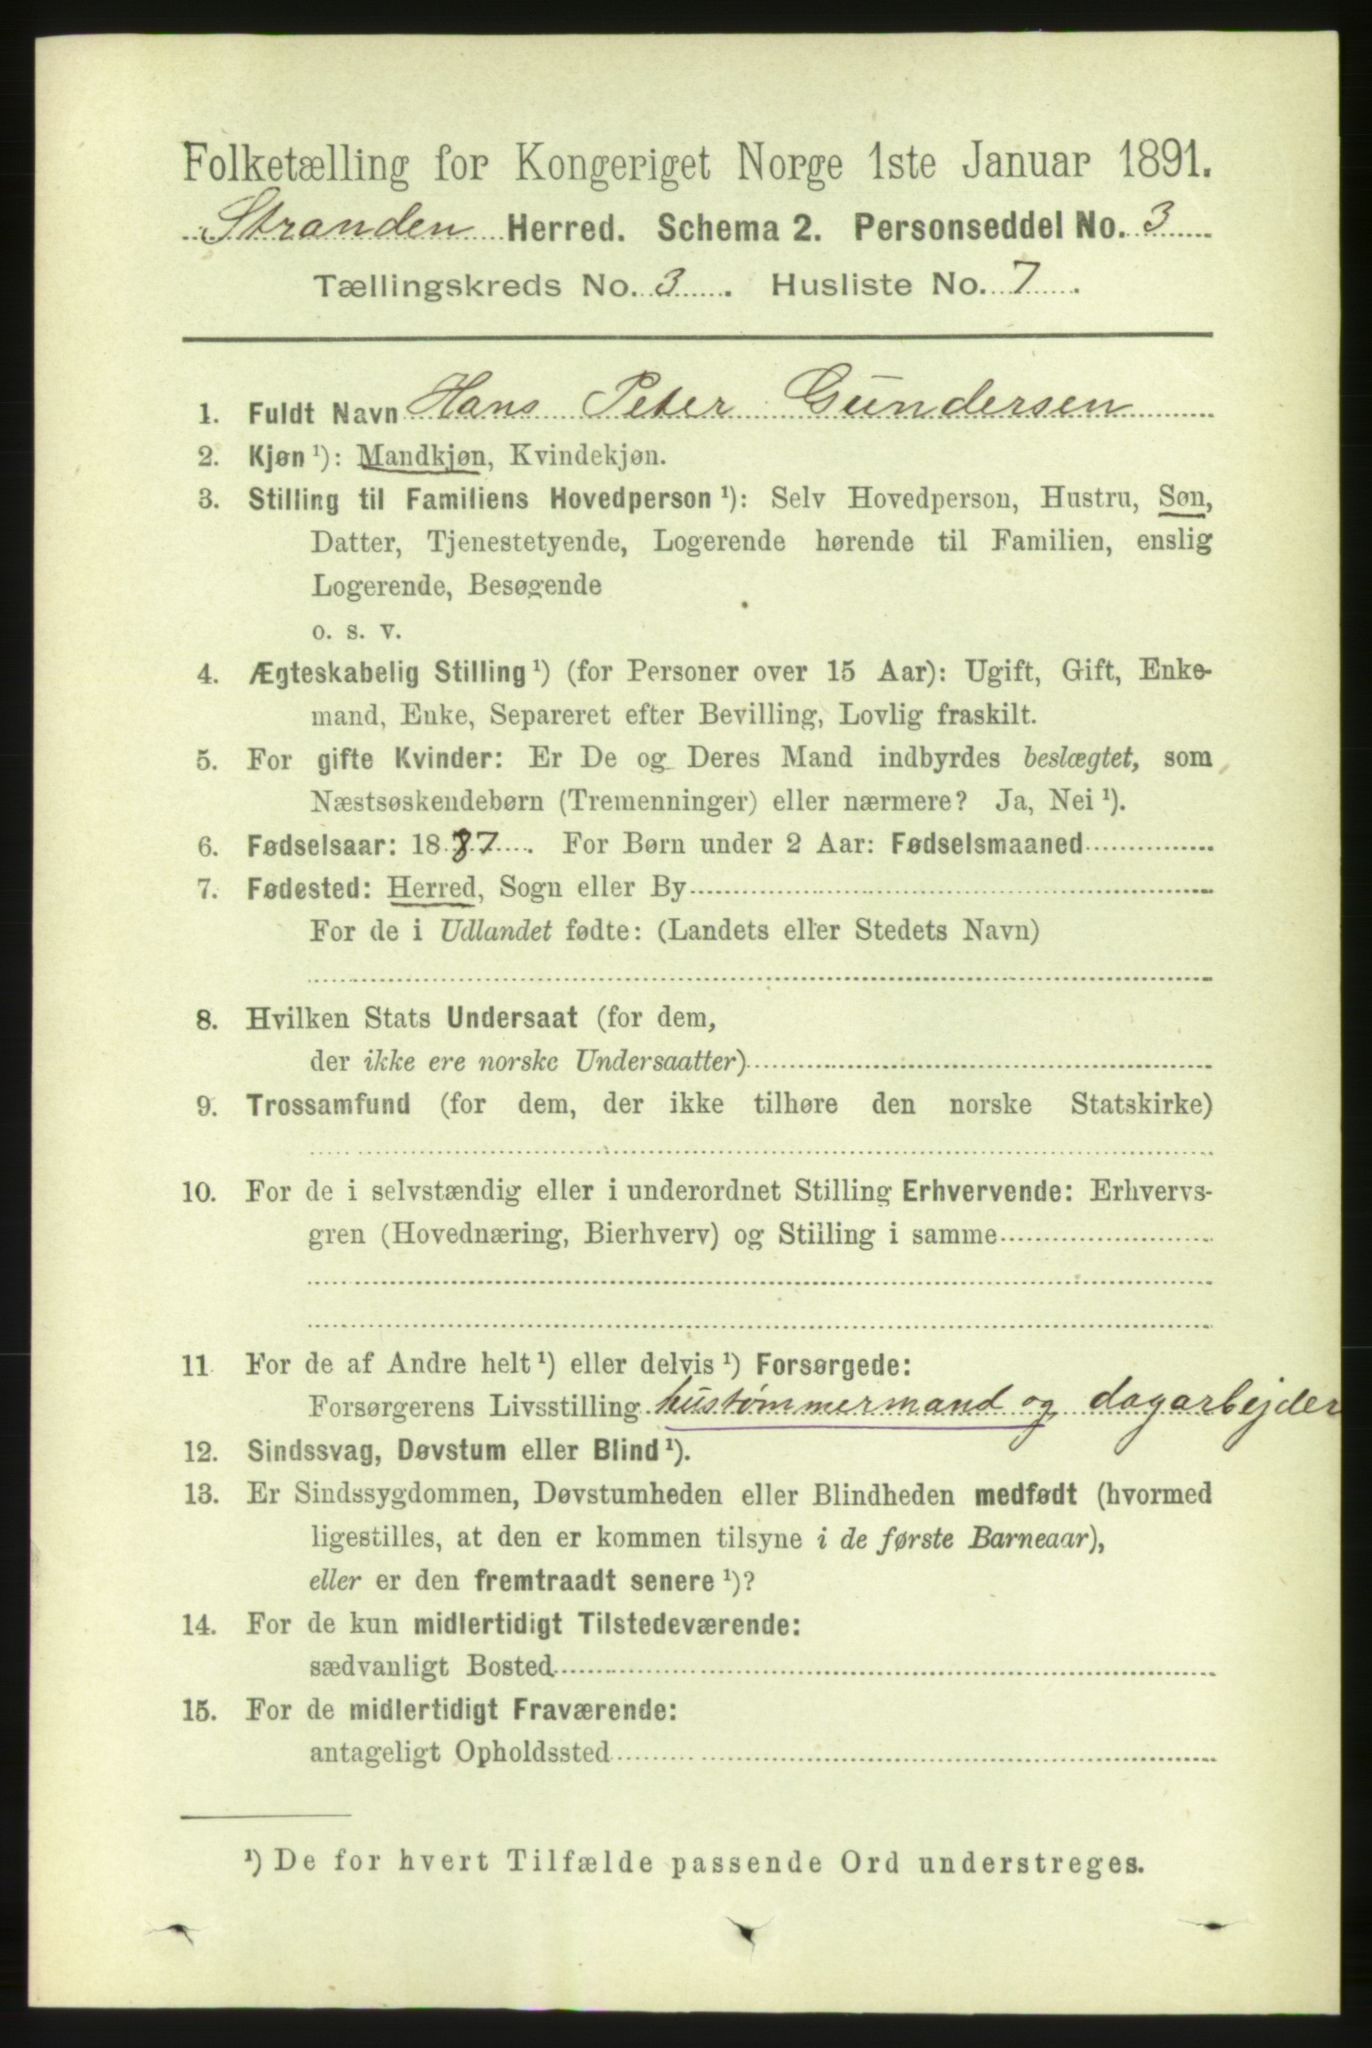 Folketælling for Kongeriget Norge 1ste Januar 1891.
Stranden Herred. Schema 2. Personseddel No. 3
Tællingskreds No. 3. Husliste No. 7.
1. Fuldt Navn Hans Peter Gundersen
2. Kjøn ¹): Mandkjøn, Kvindekjøn.
3. Stilling til Familiens Hovedperson ¹): Selv Hovedperson, Hustru, Søn,
Datter, Tjenestetyende, Logerende hørende til Familien, enslig
Logerende, Besøgende
o. s. v.
4. Ægteskabelig Stilling ¹) (for Personer over 15 Aar): Ugift, Gift, Enke-
mand, Enke, Separeret efter Bevilling, Lovlig fraskilt.
5. For gifte Kvinder: Er De og Deres Mand indbyrdes beslægtet, som
Næstsøskendebørn (Tremenninger) eller nærmere? Ja, Nei ¹).
6. Fødselsaar: 1887. For Børn under 2 Aar: Fødselsmaaned
7. Fødested: Herred, Sogn eller By
For de i Udlandet fødte: (Landets eller Stedets Navn)
8. Hvilken Stats Undersaat (for dem,
der ikke ere norske Undersaatter)
9. Trossamfund (for dem, der ikke tilhøre den norske Statskirke)
10. For de i selvstændig eller i underordnet Stilling Erhvervende: Erhvervs-
gren (Hovednæring, Bierhverv) og Stilling i samme
11 For de af Andre helt ¹) eller delvis ¹) Forsørgede:
Forsørgerens Livsstilling hustømmermand og dagarbejder
12. Sindssvag, Døvstum eller Blind ¹).
13. Er Sindssygdommen, Døvstumheden eller Blindheden medfødt (hvormed
ligestilles, at den er kommen tilsyne i de første Barneaar),
eller er den fremtraadt senere ¹)?
14. For de kun midlertidigt Tilstedeværende:
sædvanligt Bosted
15. For de midlertidigt Fraværende:
antageligt Opholdssted
¹) De for hvert Tilfælde passende Ord understreges.